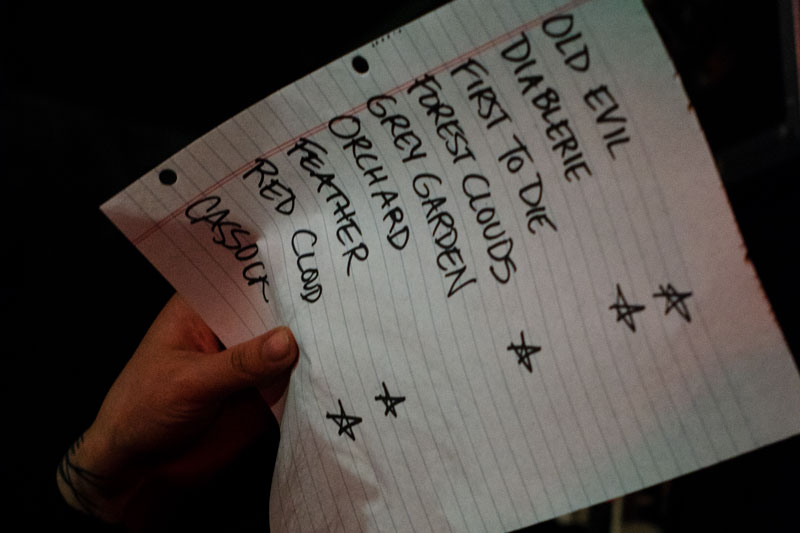 OLD EVIL
DIABLERIE
FIRST TO DIE
FOREST CLOUDS
GREY GARDEN
ORCHARD
FEATHER
RED CLOD
CASSOCK